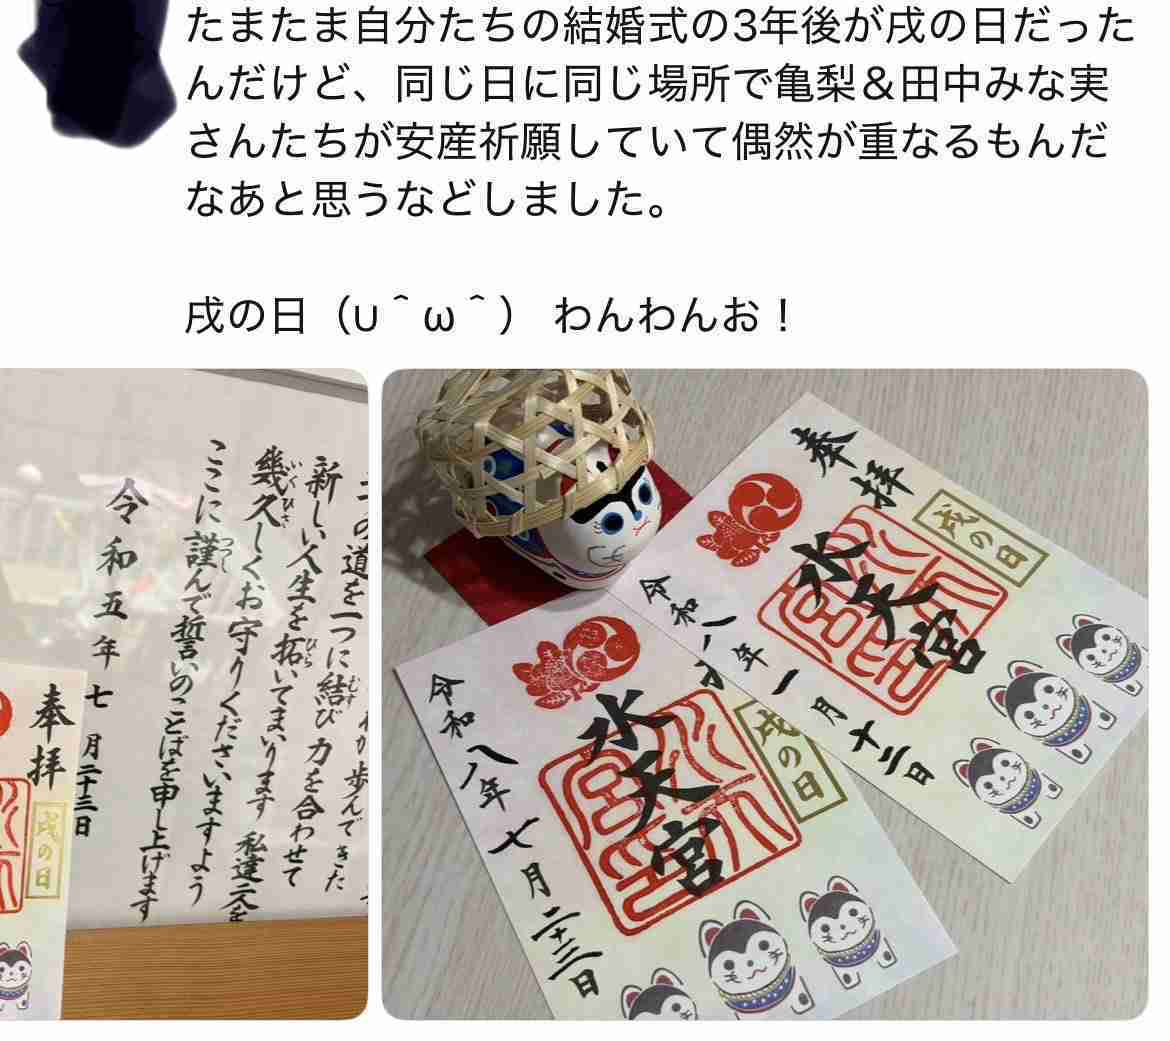 たまたま自分たちの結婚式の3年後が戌の日だった
んだけど、同じ日に同じ場所で亀梨＆田中みな実
さんたちが安産祈願していて偶然が重なるもんだ
なあと思うなどしました。
戌の日（∪＾ω＾） わんわんお！
の道を一つに結び 力を合わせて
新しい人生を拓いてまいります 私達二人を
幾久しくお守りくださいますよう
ここに謹んで誓いのことばを申し上げます
令和五年七月二十三日
いくひさ
つつし
ひら
むす
歩んできた
奉拝
戌の日
奉拝
戌の日
水天宮
令和八年一月十二日
水天宮
戌の日
令和八年七月二十三日